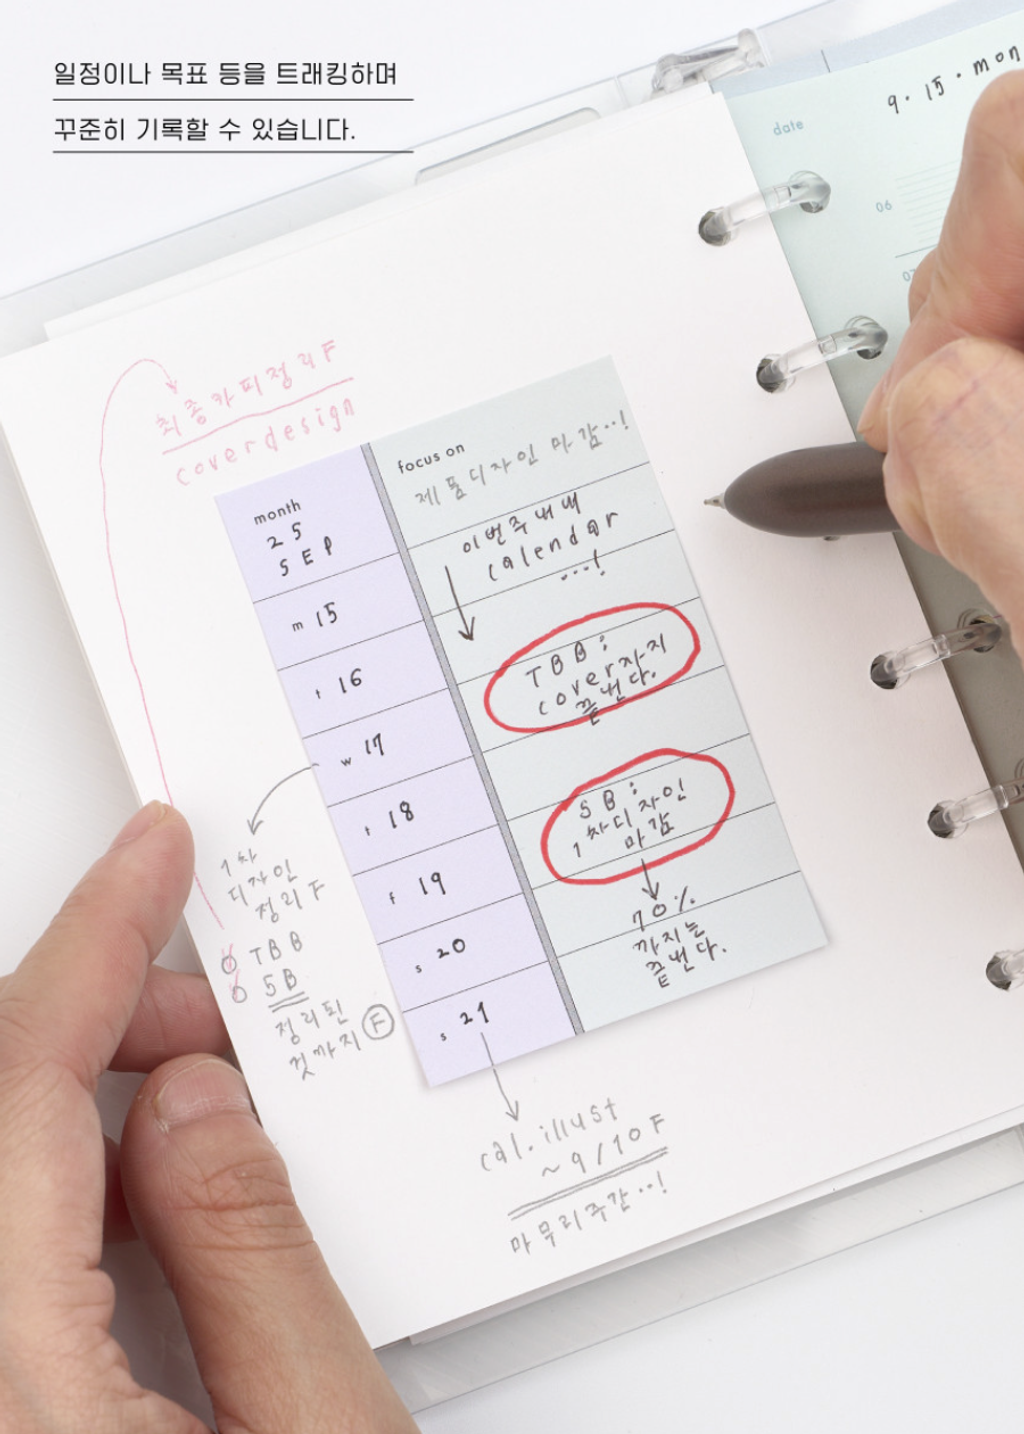 일정이나 목표 등을 트래킹하며
꾸준히 기록할 수 있습니다.
9. 15. mon
date
06
07
최종카피정리 F
coverdesign
month
25
SEP
m 15
t 16
w 17
t 18
f 19
s 20
s 21
focus on
제품디자인 마감..!
이번주내내
calendar
...!
TBB:
cover까지
끝낸다.
SB:
1차디자인
마감
70%
까지는
끝낸다.
1차
디자인
정리 F
TBB
SB
정리된
것까지 F
cal.illust
~9/10 F
마무리주간..!